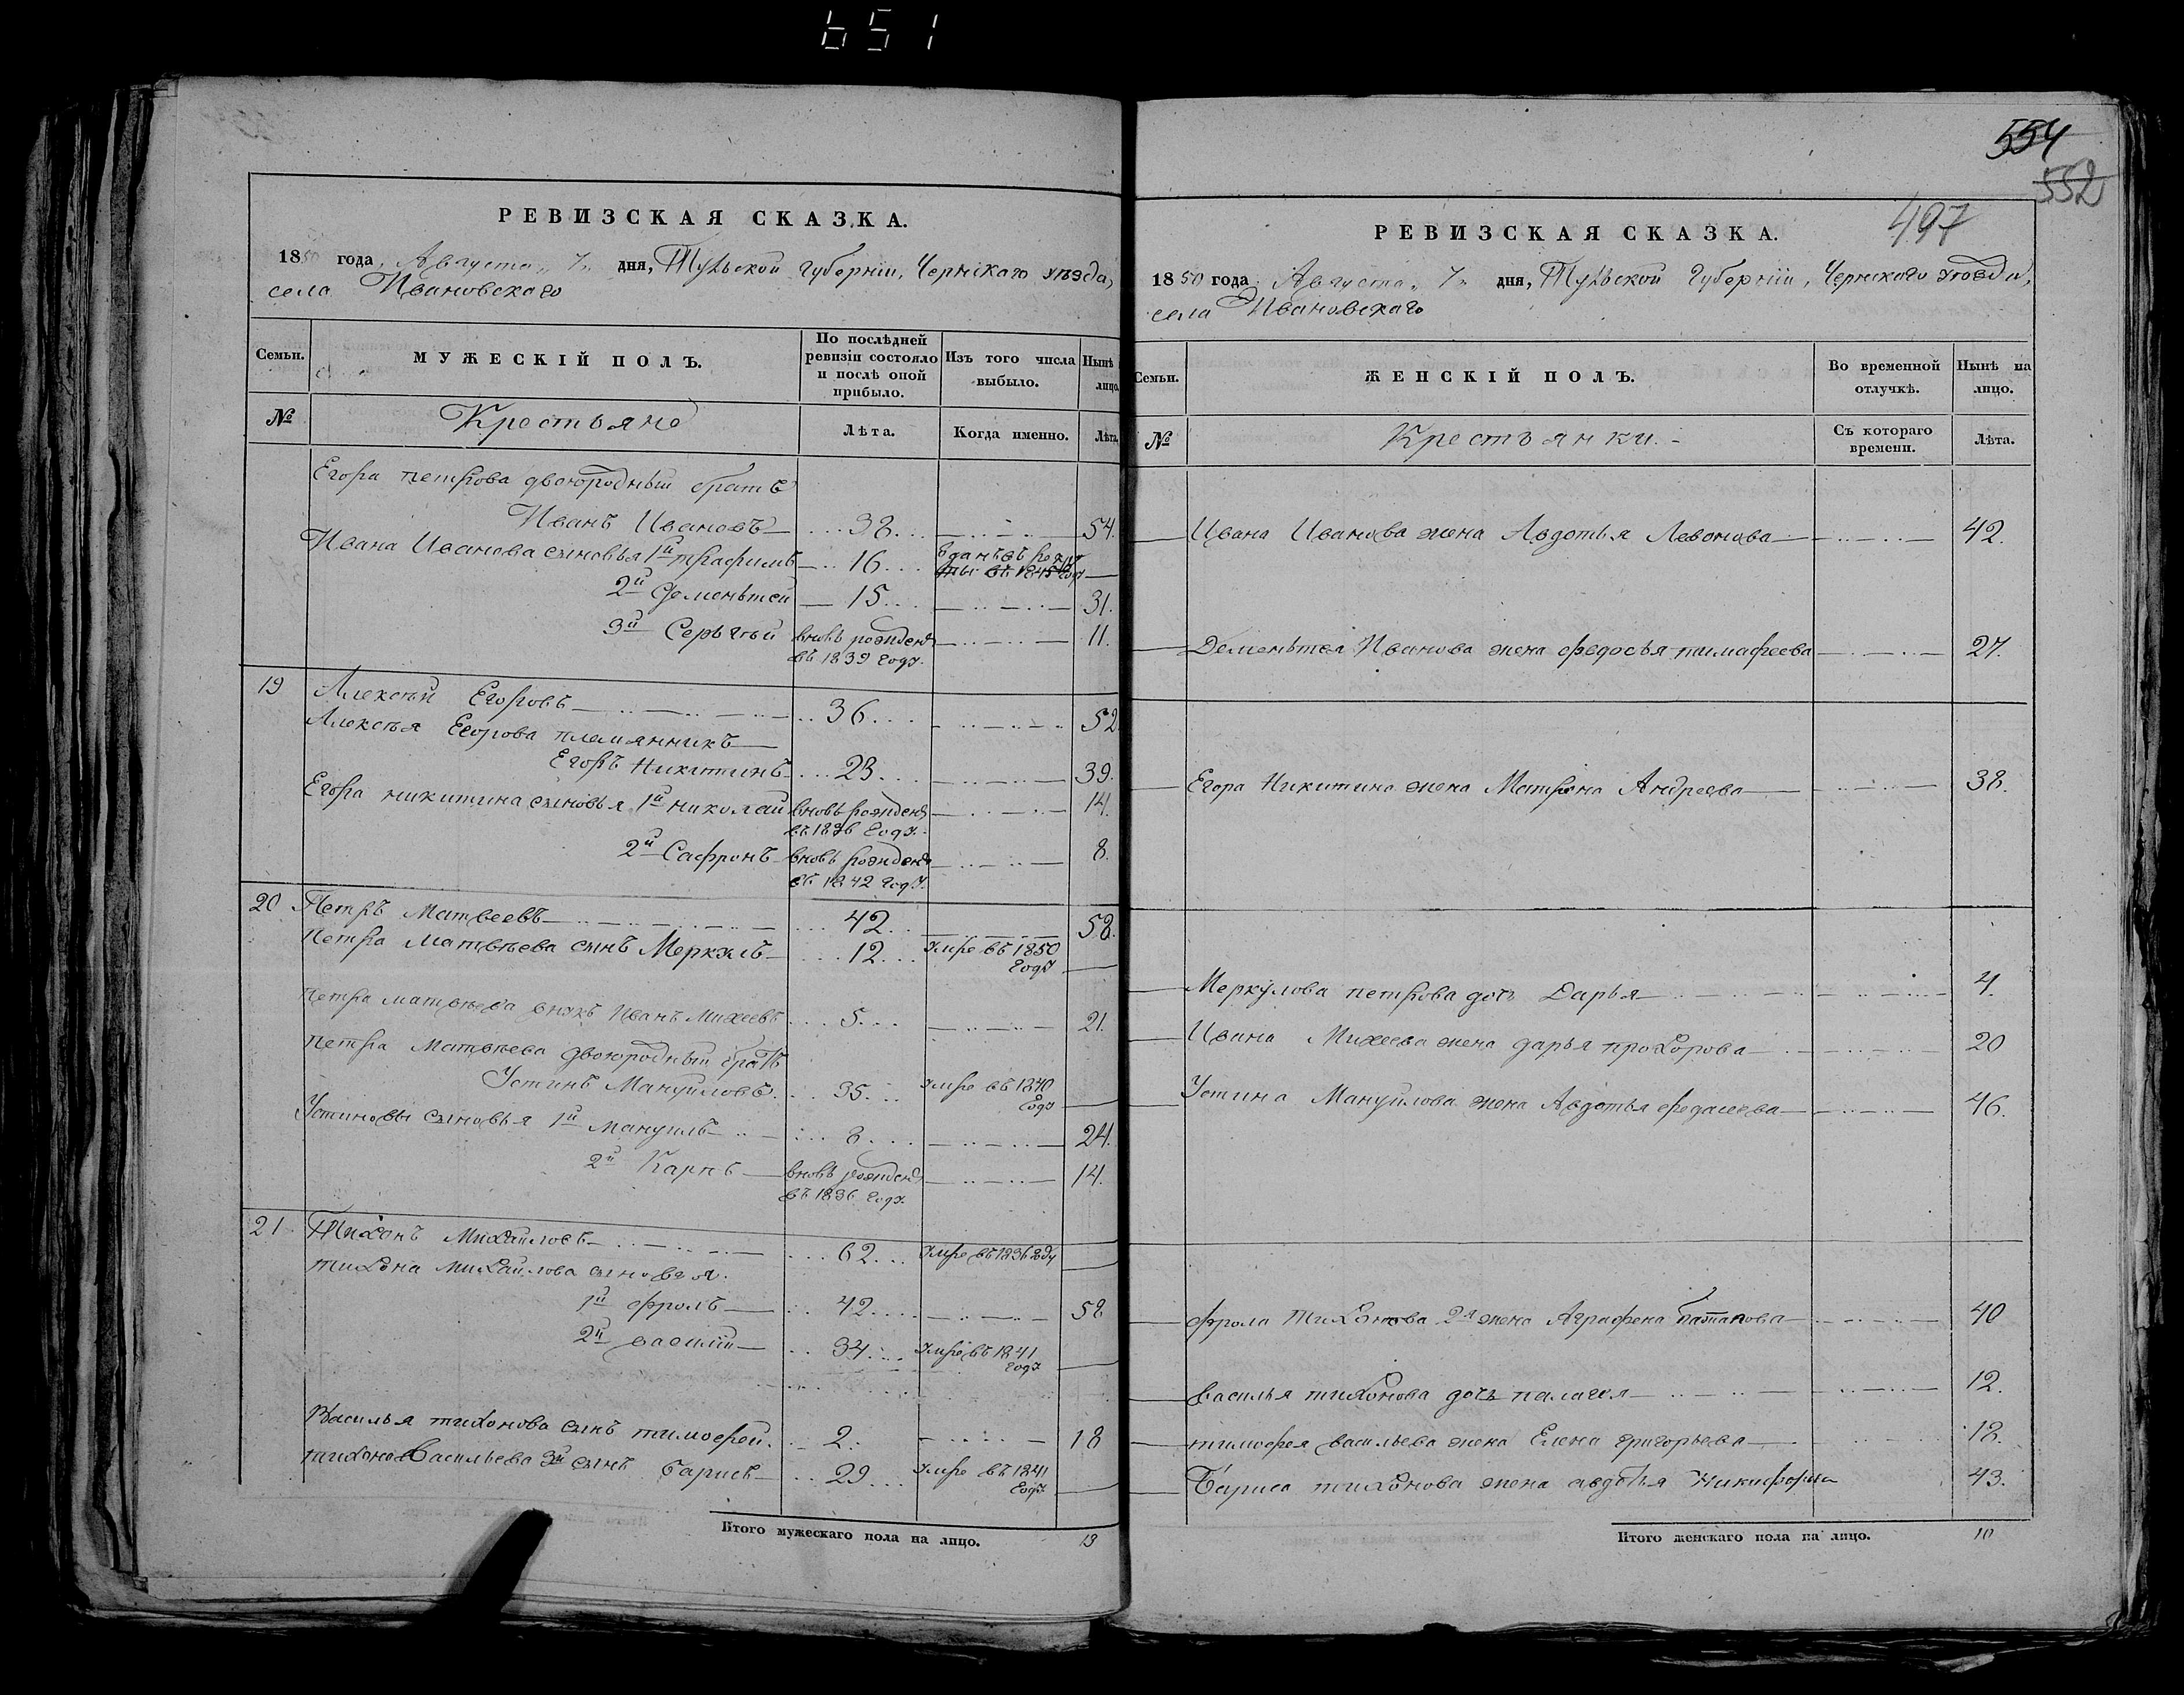 651
РЕВИЗСКАЯ СКАЗКА.
1850 года, Августа „ 7 „ дня, Тульской губерніи, Чернскаго уѣзда,
села Ивановскаго
Семьи.
МУЖЕСКІЙ ПОЛЪ.
По послѣдней ревизіи состояло и послѣ оной прибыло.
Изъ того числа выбыло.
Нынѣ лицо.
№
Крестьяне
Лѣта.
Когда именно.
Лѣта.
Егора петрова двоюродный братъ
Иванъ Ивановъ 38 54.
Ивана Иванова сыновья 1й трафимъ 16 Зданъ въ рекру
ты въ 1845 году
2й Дементей 15 31.
3й Сергѣй вновь рожденъ 11.
въ 1839 году.
19 Алексѣй Егоровъ 36 52
Алексѣя Егорова племянникъ
Егоръ Никитинъ 23 39.
Егора никитина сыновья 1й николай вновь рожденъ 14.
въ 1836 году.
2й Сафронъ вновь рожденъ 8.
въ 1842 году.
20 Петръ Матвеевъ 42 58.
Петра Матвѣева сынъ Меркулъ 12 умре въ 1850
году
Петра матвѣева внукъ Иванъ Михеевъ 5 21.
Петра Матвѣева двоюродный братъ
Устинъ Мануйловъ 35 умре въ 1840
году
Устиновы сыновья 1й Мануилъ 8 24.
2й Карпъ вновь рожденъ 14.
въ 1836 году.
21 Тихонъ Михайловъ 62 умре въ 1836 году
тихона михайлова сыновья.
1й фролъ 42 58
2й василій 34 умре въ 1841
году
Василья тихонова сынъ тимофей. 2 18
тихона Васильева 3й сынъ Барисъ 29 умре въ 1841
году
Итого мужескаго пола на лицо. 13
554
552
497
РЕВИЗСКАЯ СКАЗКА.
1850 года, Августа „ 7 „ дня, Тульской Губерніи, Чернскаго уѣзда,
села Ивановскаго
Семьи.
ЖЕНСКІЙ ПОЛЪ.
Во временной отлучкѣ.
Нынѣ на лицо.
№
Крестьянки.
Съ котораго времени.
Лѣта.
Ивана Иванова жена Авдотья Левонова 42.
Дементея Иванова жена федосья тимафеева 27.
Егора Никитина жена Матрена Андреева 38.
Меркулова петрова дочь Дарья 4.
Ивана Михеева жена дарья прохорова 20
Устина Мануйлова жена Авдотья федасеева 46.
фрола Тихонова 2я жена Аграфена 40
василья тихонова дочь палагея 12.
тимофея васильева жена Елена григорьева 18.
Бариса тихонова жена авдотья Никифорова 43.
Итого женскаго пола на лицо. 10